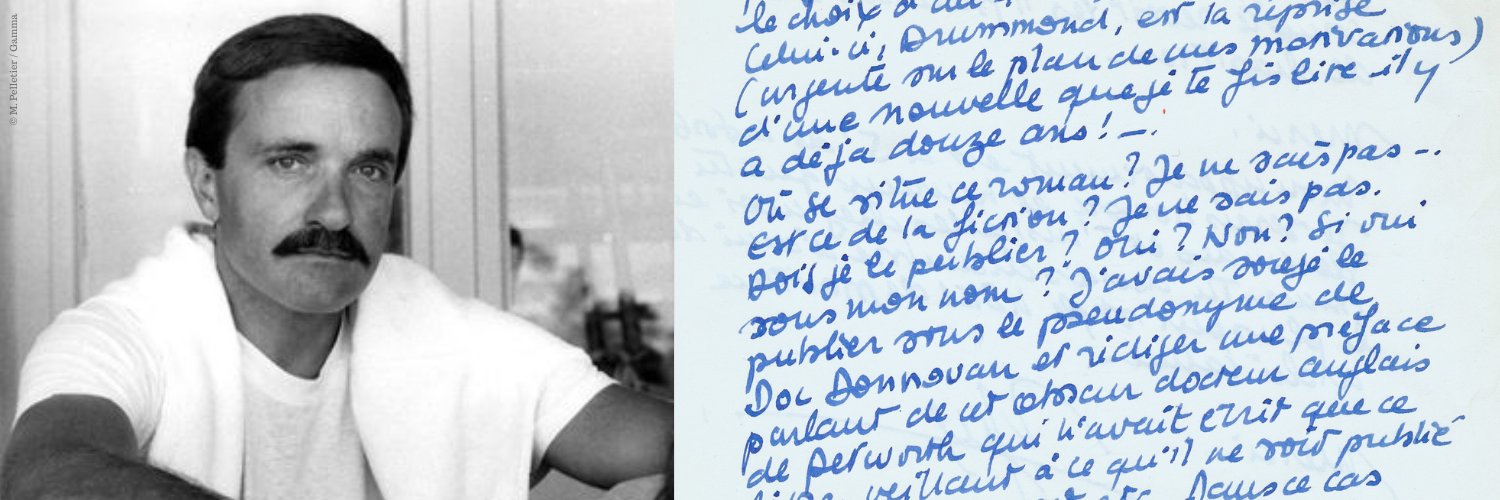 © M. Pelletier / Gamma
le choix d'un
Celui-ci, Drummond, est la reprise
(urgente sur le plan de mes motivations)
d'une nouvelle que je te fis lire il y
a déja douze ans ! —.
Où se situe ce roman ? Je ne sais pas —.
Est ce de la fiction ? Je ne sais pas.
Dois je le publier ? Oui ? Non ? Si oui
sous mon nom ? J'avais songé le
publier sous le pseudonyme de
Doc Donnovan et rédiger une préface
parlant de cet obscur docteur anglais
de Petworth qui n'avait écrit que ce
veillant à ce qu'il ne soit publié
Dans ce cas